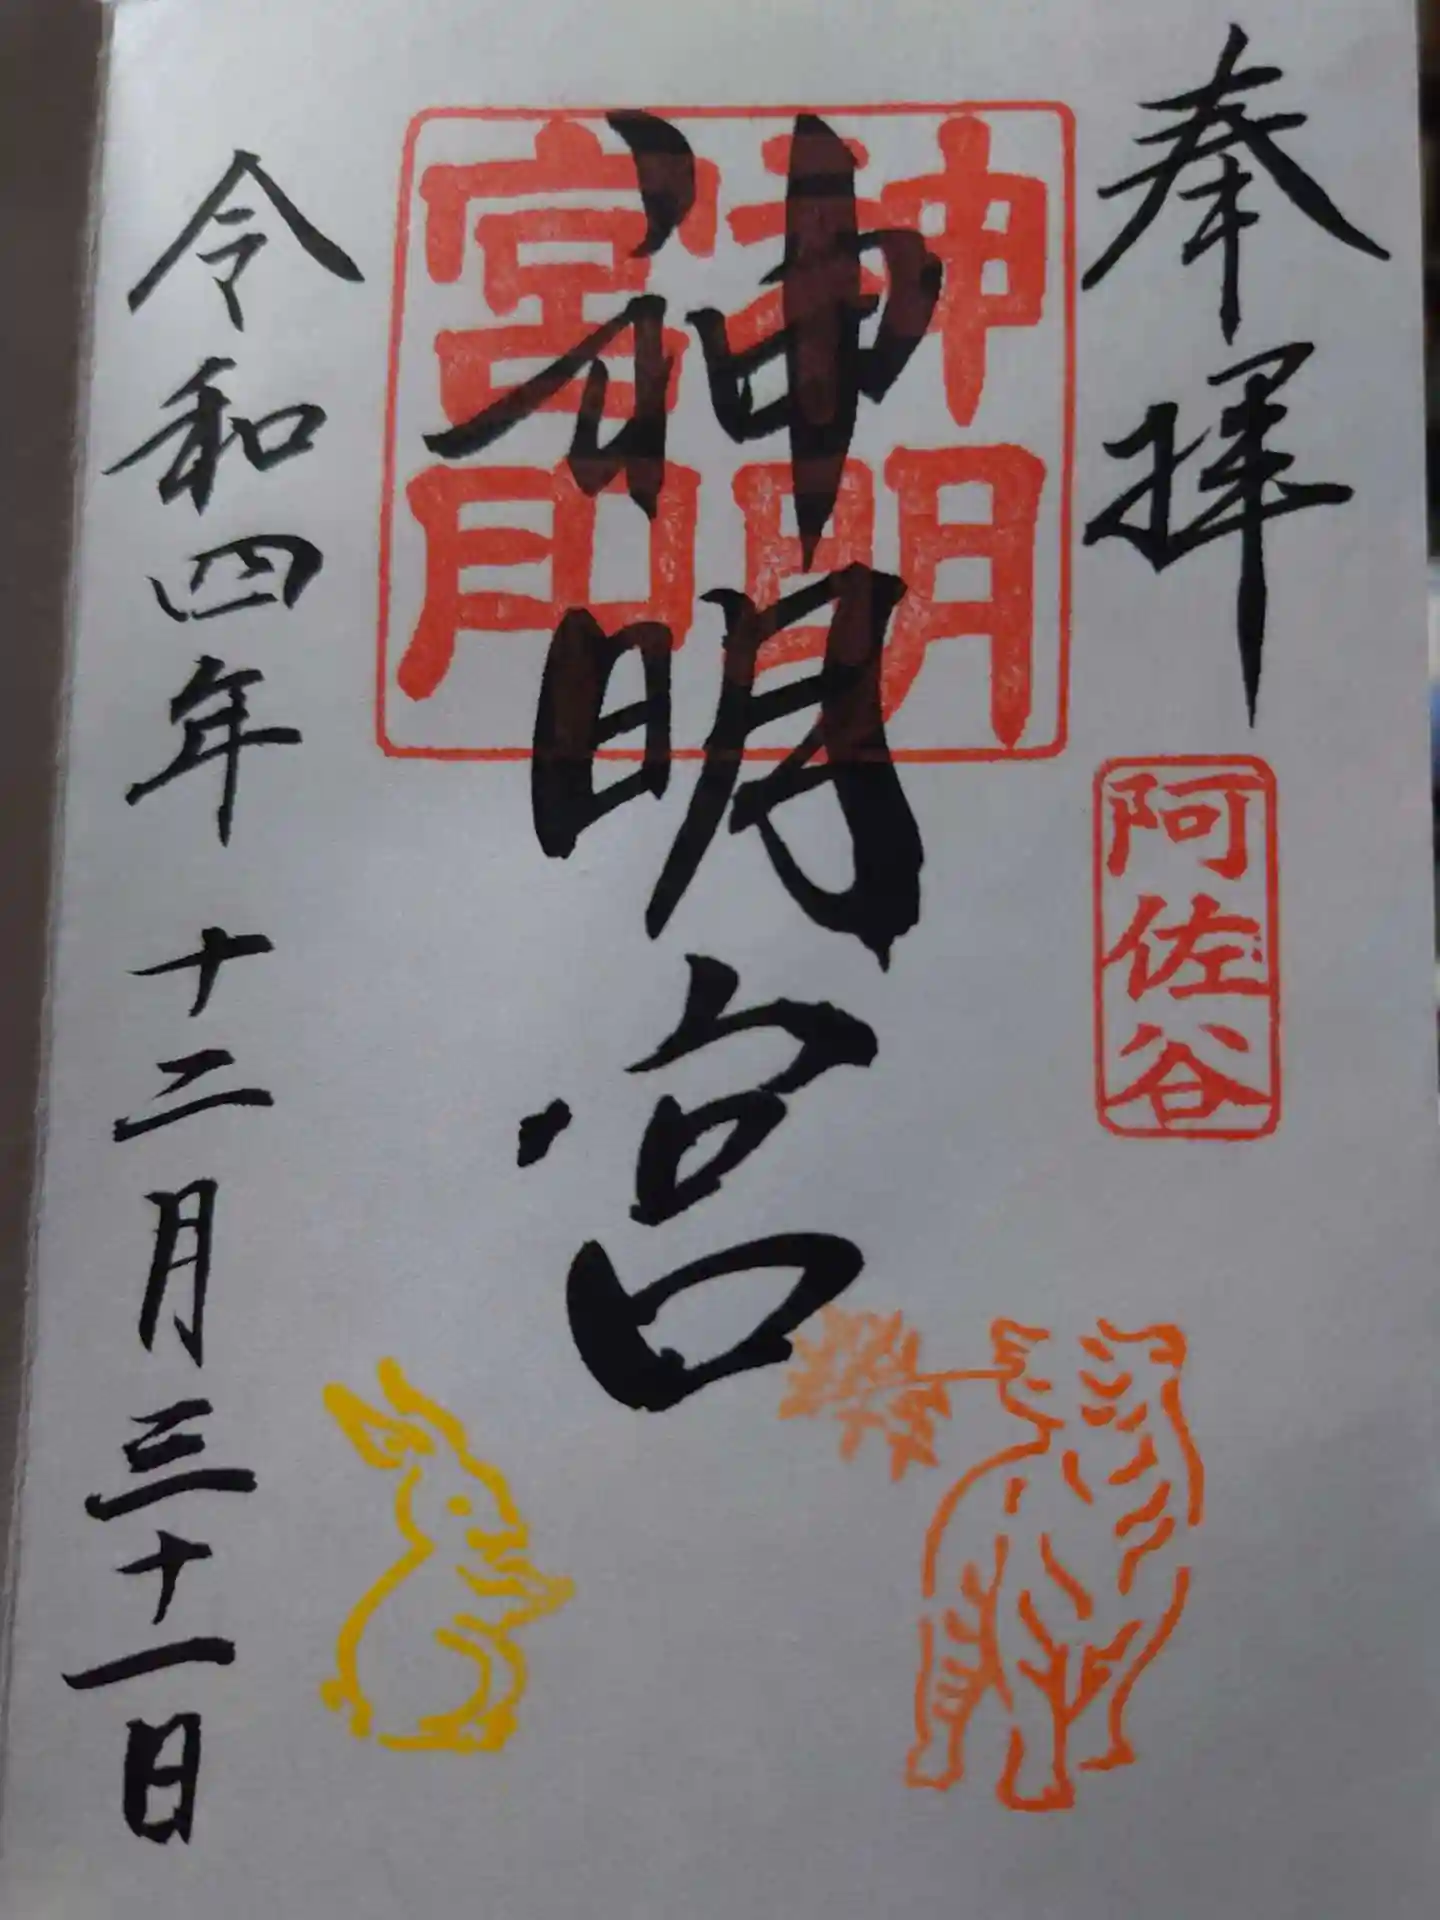 奉拝
阿佐谷
神明宮
神明宮印
令和四年十二月三十一日